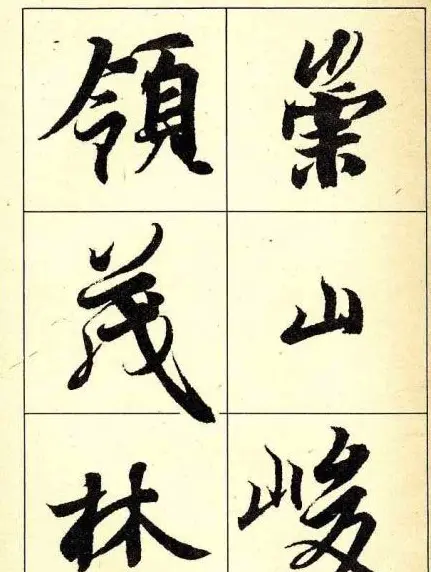 崇山峻
領茂林